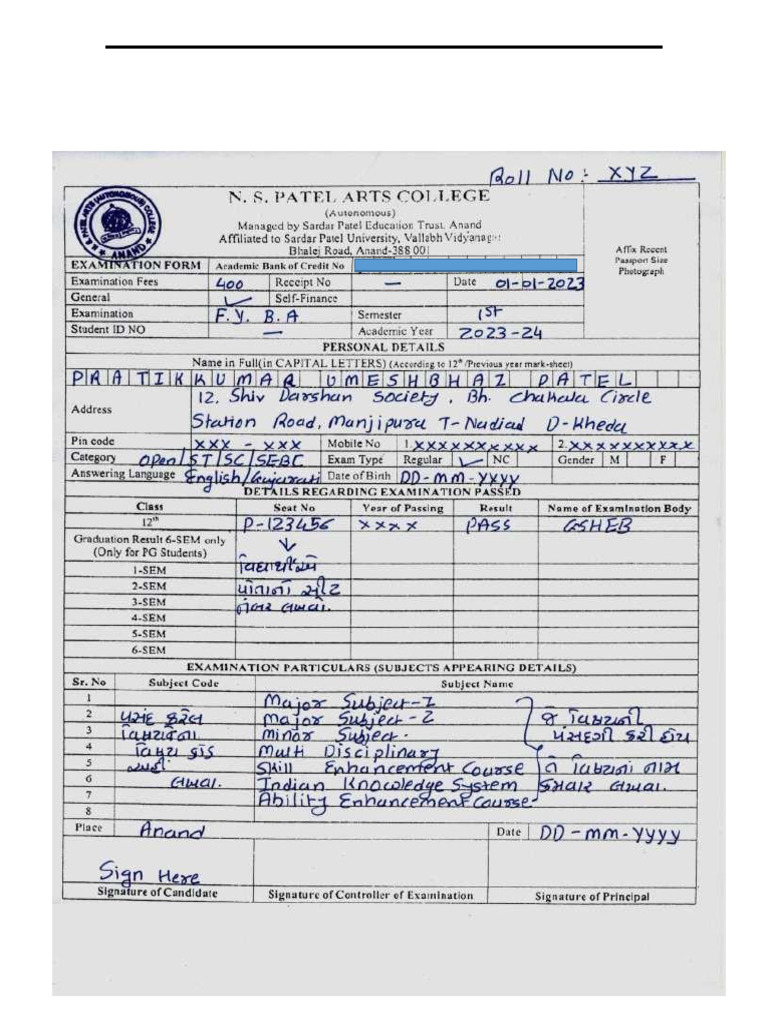 Roll No :- XYZ
N. S. PATEL ARTS COLLEGE
(Autonomous)
Managed by Sardar Patel Education Trust, Anand
Affiliated to Sardar Patel University, Vallabh Vidyanagar
Bhalej Road, Anand-388 001
Affix Recent
Passport Size
Photograph
EXAMINATION FORM Academic Bank of Credit No
Examination Fees 400 Receipt No — Date 01-01-2023
General ✓ Self-Finance
Examination F.Y. B.A Semester 1st
Student ID NO — Academic Year 2023-24
PERSONAL DETAILS
Name in Full(in CAPITAL LETTERS) (According to 12th /Previous year mark-sheet)
PRATIKKUMAR UMESHBHAI PATEL
Address 12, Shiv Darshan Society, Bh. Chakala Circle
Station Road, Manjipura T-Nadiad D-Kheda
Pin code XXX - XXX Mobile No 1.XXXXXXXXXX 2.XXXXXXXXXX
Category Open/ST/SC/SEBC Exam Type Regular ✓ NC Gender M F
Answering Language English/Gujarati Date of Birth DD-MM-YYYY
DETAILS REGARDING EXAMINATION PASSED
Class Seat No Year of Passing Result Name of Examination Body
12th P-123456 XXXX PASS GSHEB
Graduation Result 6-SEM only
(Only for PG Students)
1-SEM વિદ્યાર્થીએ
2-SEM પોતાનો સીટ
3-SEM નંબર લખવો.
4-SEM
5-SEM
6-SEM
EXAMINATION PARTICULARS (SUBJECTS APPEARING DETAILS)
Sr. No Subject Code Subject Name
1 Major Subject-1
2 પસંદ કરેલ Major Subject-2 જે વિષયની
3 વિષયના Minor Subject. પસંદગી કરી હોય
4 વિષય કોડ Multi Disciplinary
5 અહીં Skill Enhancement Course તે વિષયના નામ
6 લખવા. Indian Knowledge System ક્રમવાર લખવા.
7 Ability Enhancement Course-
8
Place Anand Date DD-MM-YYYY
Sign Here
Signature of Candidate Signature of Controller of Examination Signature of Principal